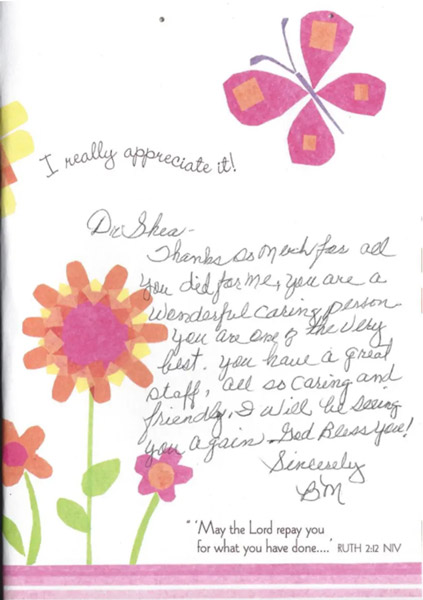 I really appreciate it!
Dr Shea -
Thanks so much for all
you did for me, you are a
wonderful caring person
you are one of the very
best. you have a great
staff, all so caring and
friendly, I will be seeing
you again. God Bless you!
Sincerely
BM
" 'May the Lord repay you
for what you have done....' RUTH 2:12 NIV